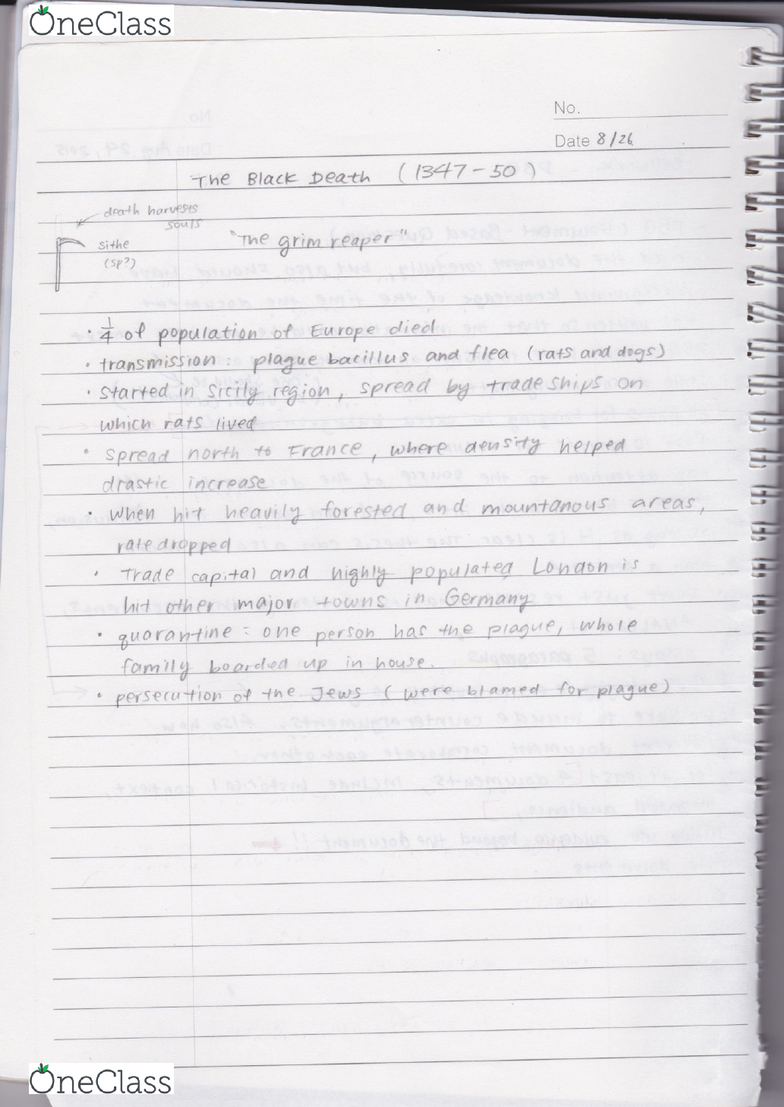 OneClass
No.
Date 8/26
The Black Death (1347-50)
death harvests
souls
sithe
(sp?)
"The grim reaper"
· 1/4 of population of Europe died
· transmission: plague bacillus and flea (rats and dogs)
· started in sicily region, spread by trade ships on
which rats lived
· spread north to France, where density helped
drastic increase
· when hit heavily forested and mountanous areas,
rate dropped
· Trade capital and highly populated London is
hit other major towns in Germany
· quarantine: one person has the plague, whole
family boarded up in house.
· persecution of the Jews (were blamed for plague)
OneClass